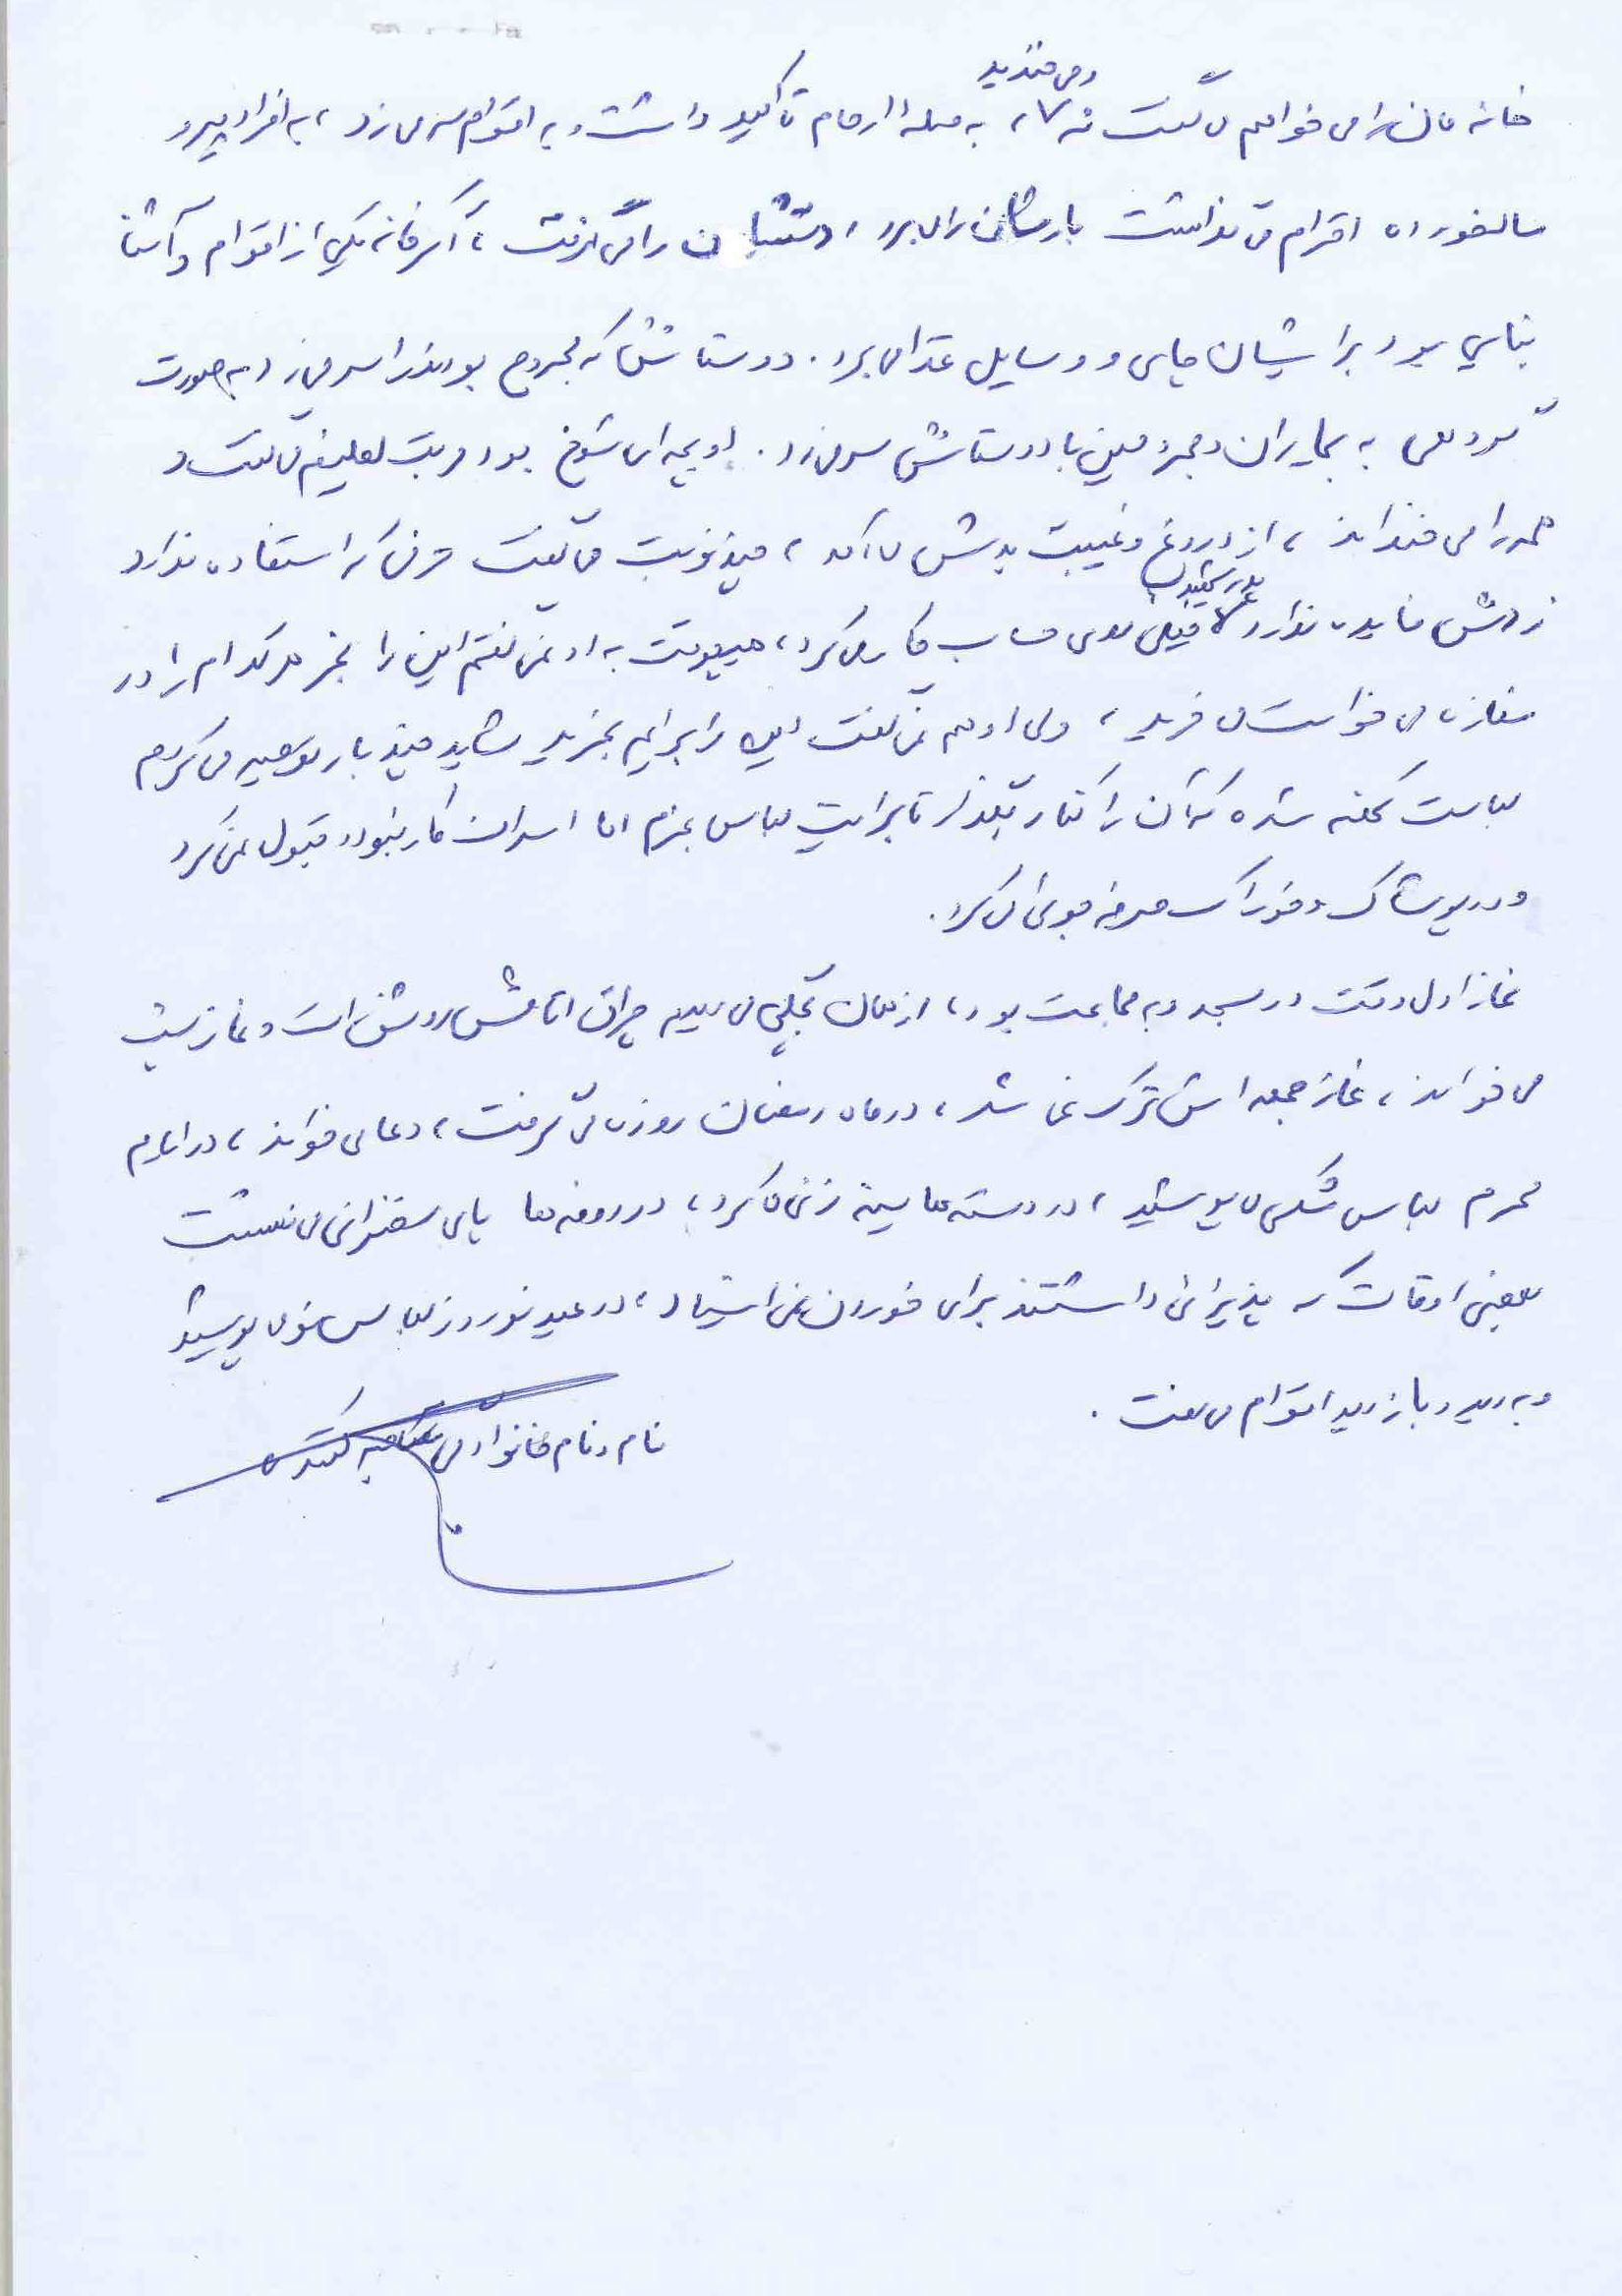 و می خندید
خانه مان را می خواهم می گفت نه ، به صله ارحام تأکید داشت و به اقوام سر می زد ، به افراد پیر و
سالخورده احترام می گذاشت بارشان را می برد ، دستشان را می گرفت ، اگر خانه یکی از اقوام و آشنا
بنایی بود برایشان چای و وسایل غذا می برد . دوستانش که مجروح بودند را سر می زد به صورت
گروهی به بیماران و مجروحین با دوستانش سر می زد . او بچه ای شوخ بود مرتب لطیفه می گفت و
همه را می خنداند ، از دروغ و غیبت بدش می آمد ، چند نوبت می گفت حرفی که استفاده ندارد
زدنش فایده ندارد خیلی روی حساب کار می کرد ، هیچوقت به او نمی گفتم این را بخر هر کدام را در
مغازه می خواست می خرید ، ولی او هم نمی گفت این را برایم بخرید شاید چند بار توصیه می کردم
لباست کهنه شده که آن را کنار بگذار تا برایت لباس بخرم اما اسراف کار نبود و قبول نمی کرد
و در پوشاک و خوراک صرفه جویی می کرد .
نماز اول وقت در مسجد و به جماعت بود ، از همان بچگی می دیدم چراغ اتاقش روشن است و نماز شب
می خواند ، نماز جمعه اش ترک نمی شد ، در ماه رمضان روزه می گرفت ، دعا می خواند ، در ایام
محرم لباس مشکی می پوشید ، در دسته ها سینه زنی می کرد ، در روضه ها پای سخنرانی می نشست
بعضی اوقات که پذیرایی داشتند برای خوردن نمی ایستاد ، در عید نوروز لباس نو می پوشید
و به دید و بازدید اقوام می رفت .
نام و نام خانوادگی